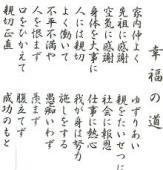 幸福の道
家内仲よく ゆずりあい
先祖に感謝 親をたいせつに
空気に感謝 社会に報恩
身体を大事に 仕事に熱心
人には親切 我が身は努力
よく働いて 施しをする
不平不満や 愚痴いわず
人を恨まず 羨まず
口をひかえて 腹立てず
親切正直 成功のもと